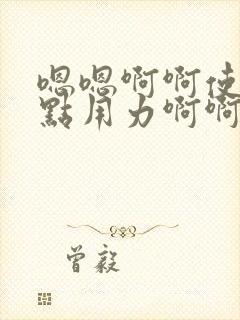 嗯嗯啊啊使
點用力啊啊
曾毅